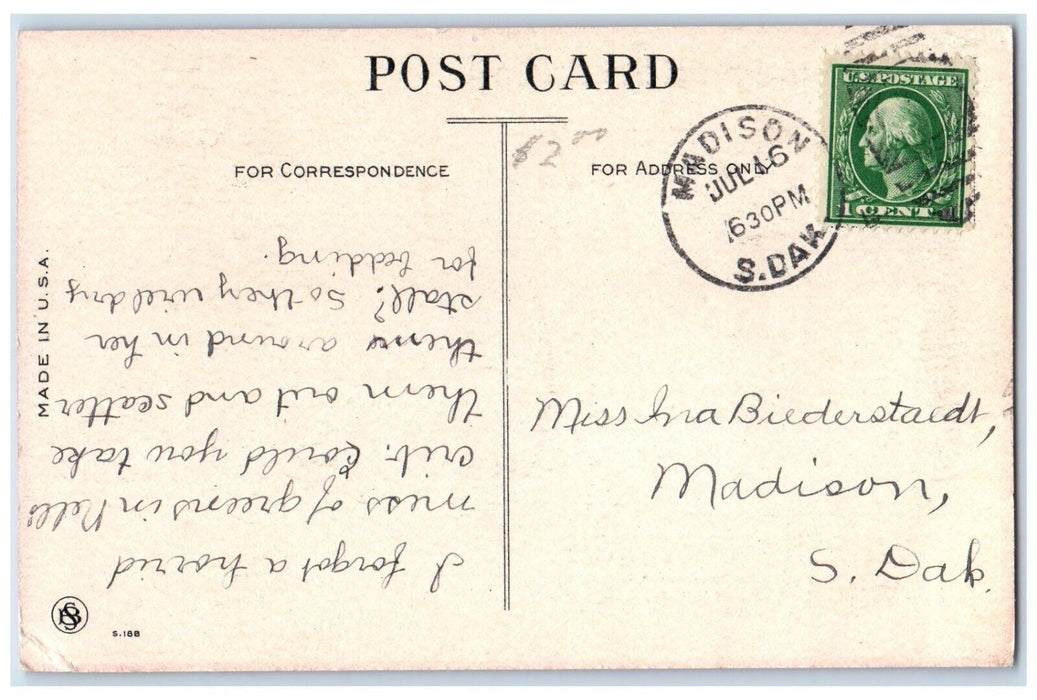 POST CARD
FOR CORRESPONDENCE
FOR ADDRESS ONLY
$2.00
MADISON
JUL 16
630PM
S.DAK
U.S. POSTAGE
1 CENT
MADE IN U.S.A.
I forgot a horrid
mess of greens in Nells
crib. Could you take
them out and scatter
them around in her
stall? So they will dry
for bedding.
Miss Ina Biederstaedt,
Madison,
S. Dak.
S.188